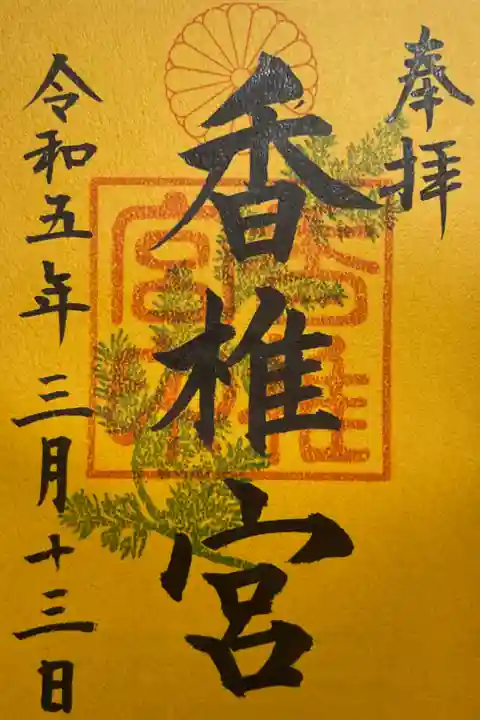 奉拝
香椎宮
令和五年三月十三日